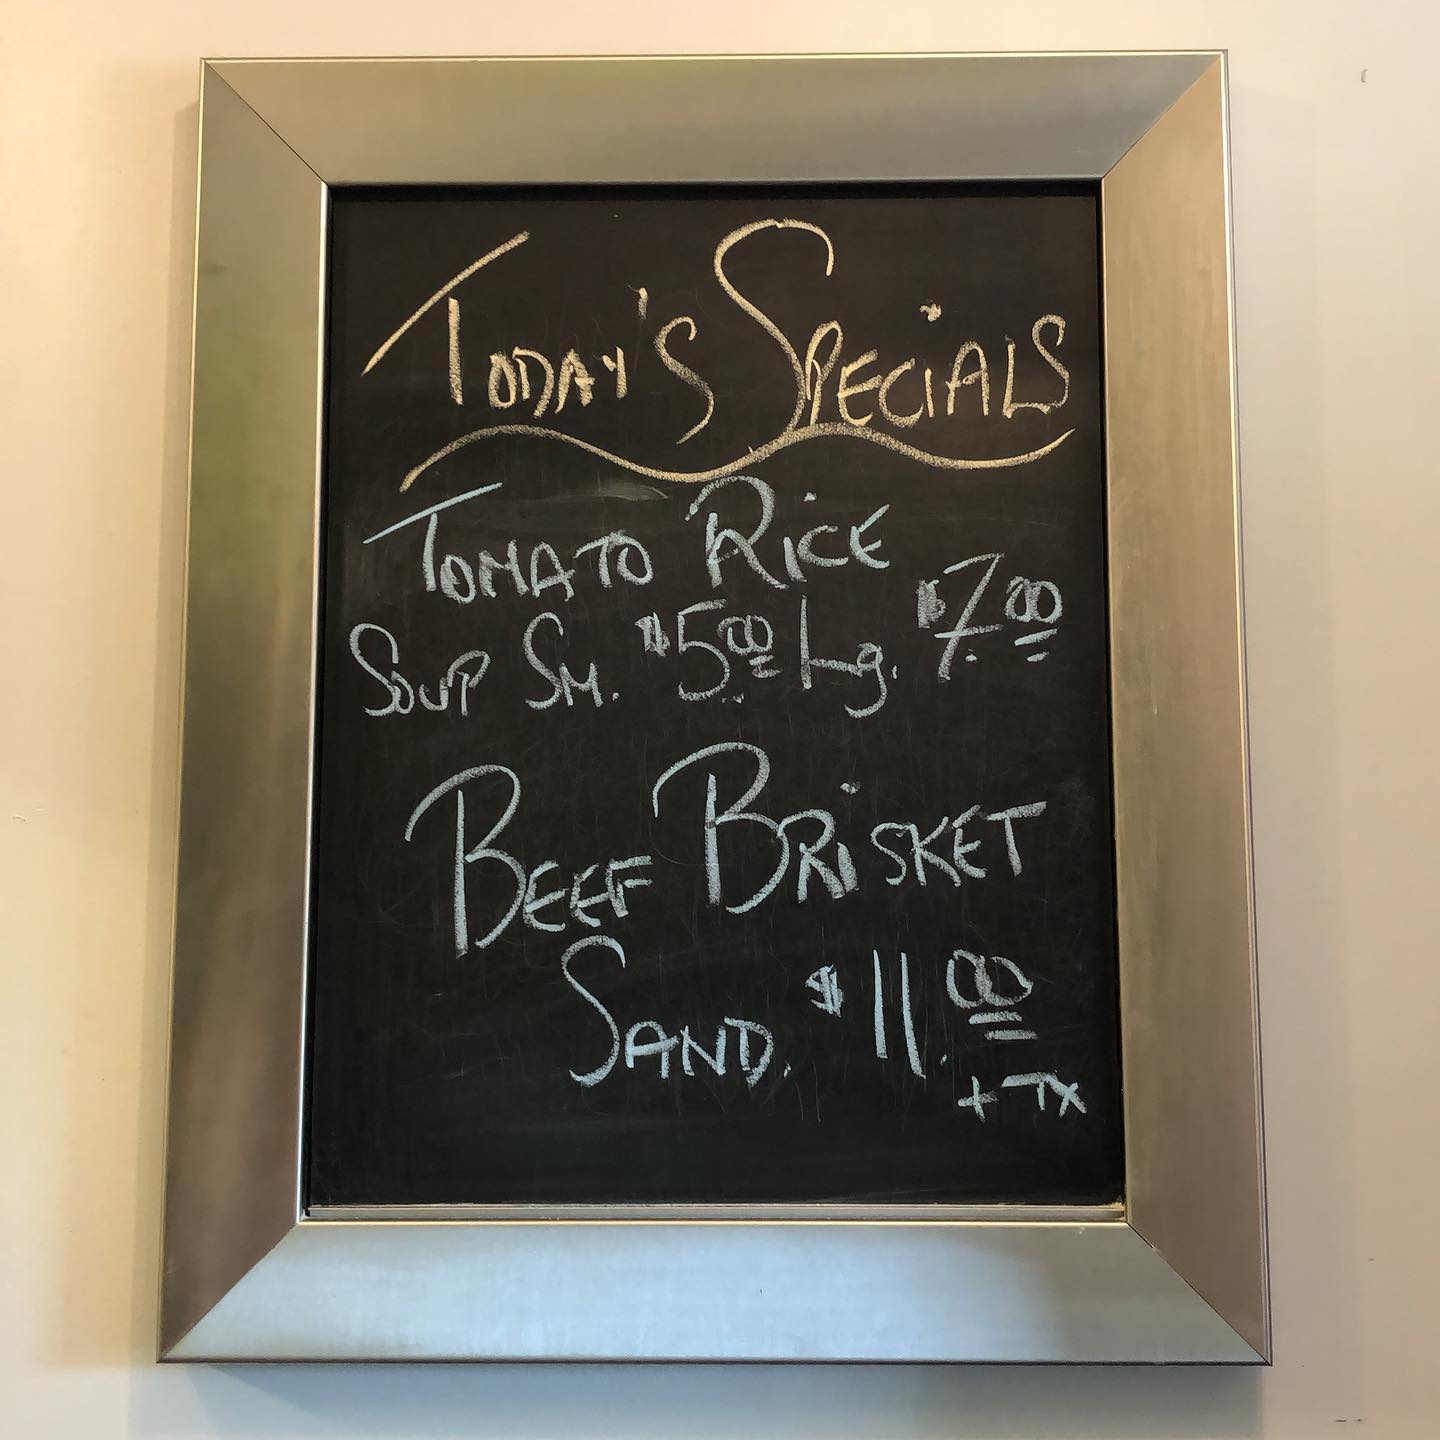 Today's Specials
Tomato Rice
Soup Sm. $5.00 Lg. $7.00
Beef Brisket
Sand. $11.00
+ Tx